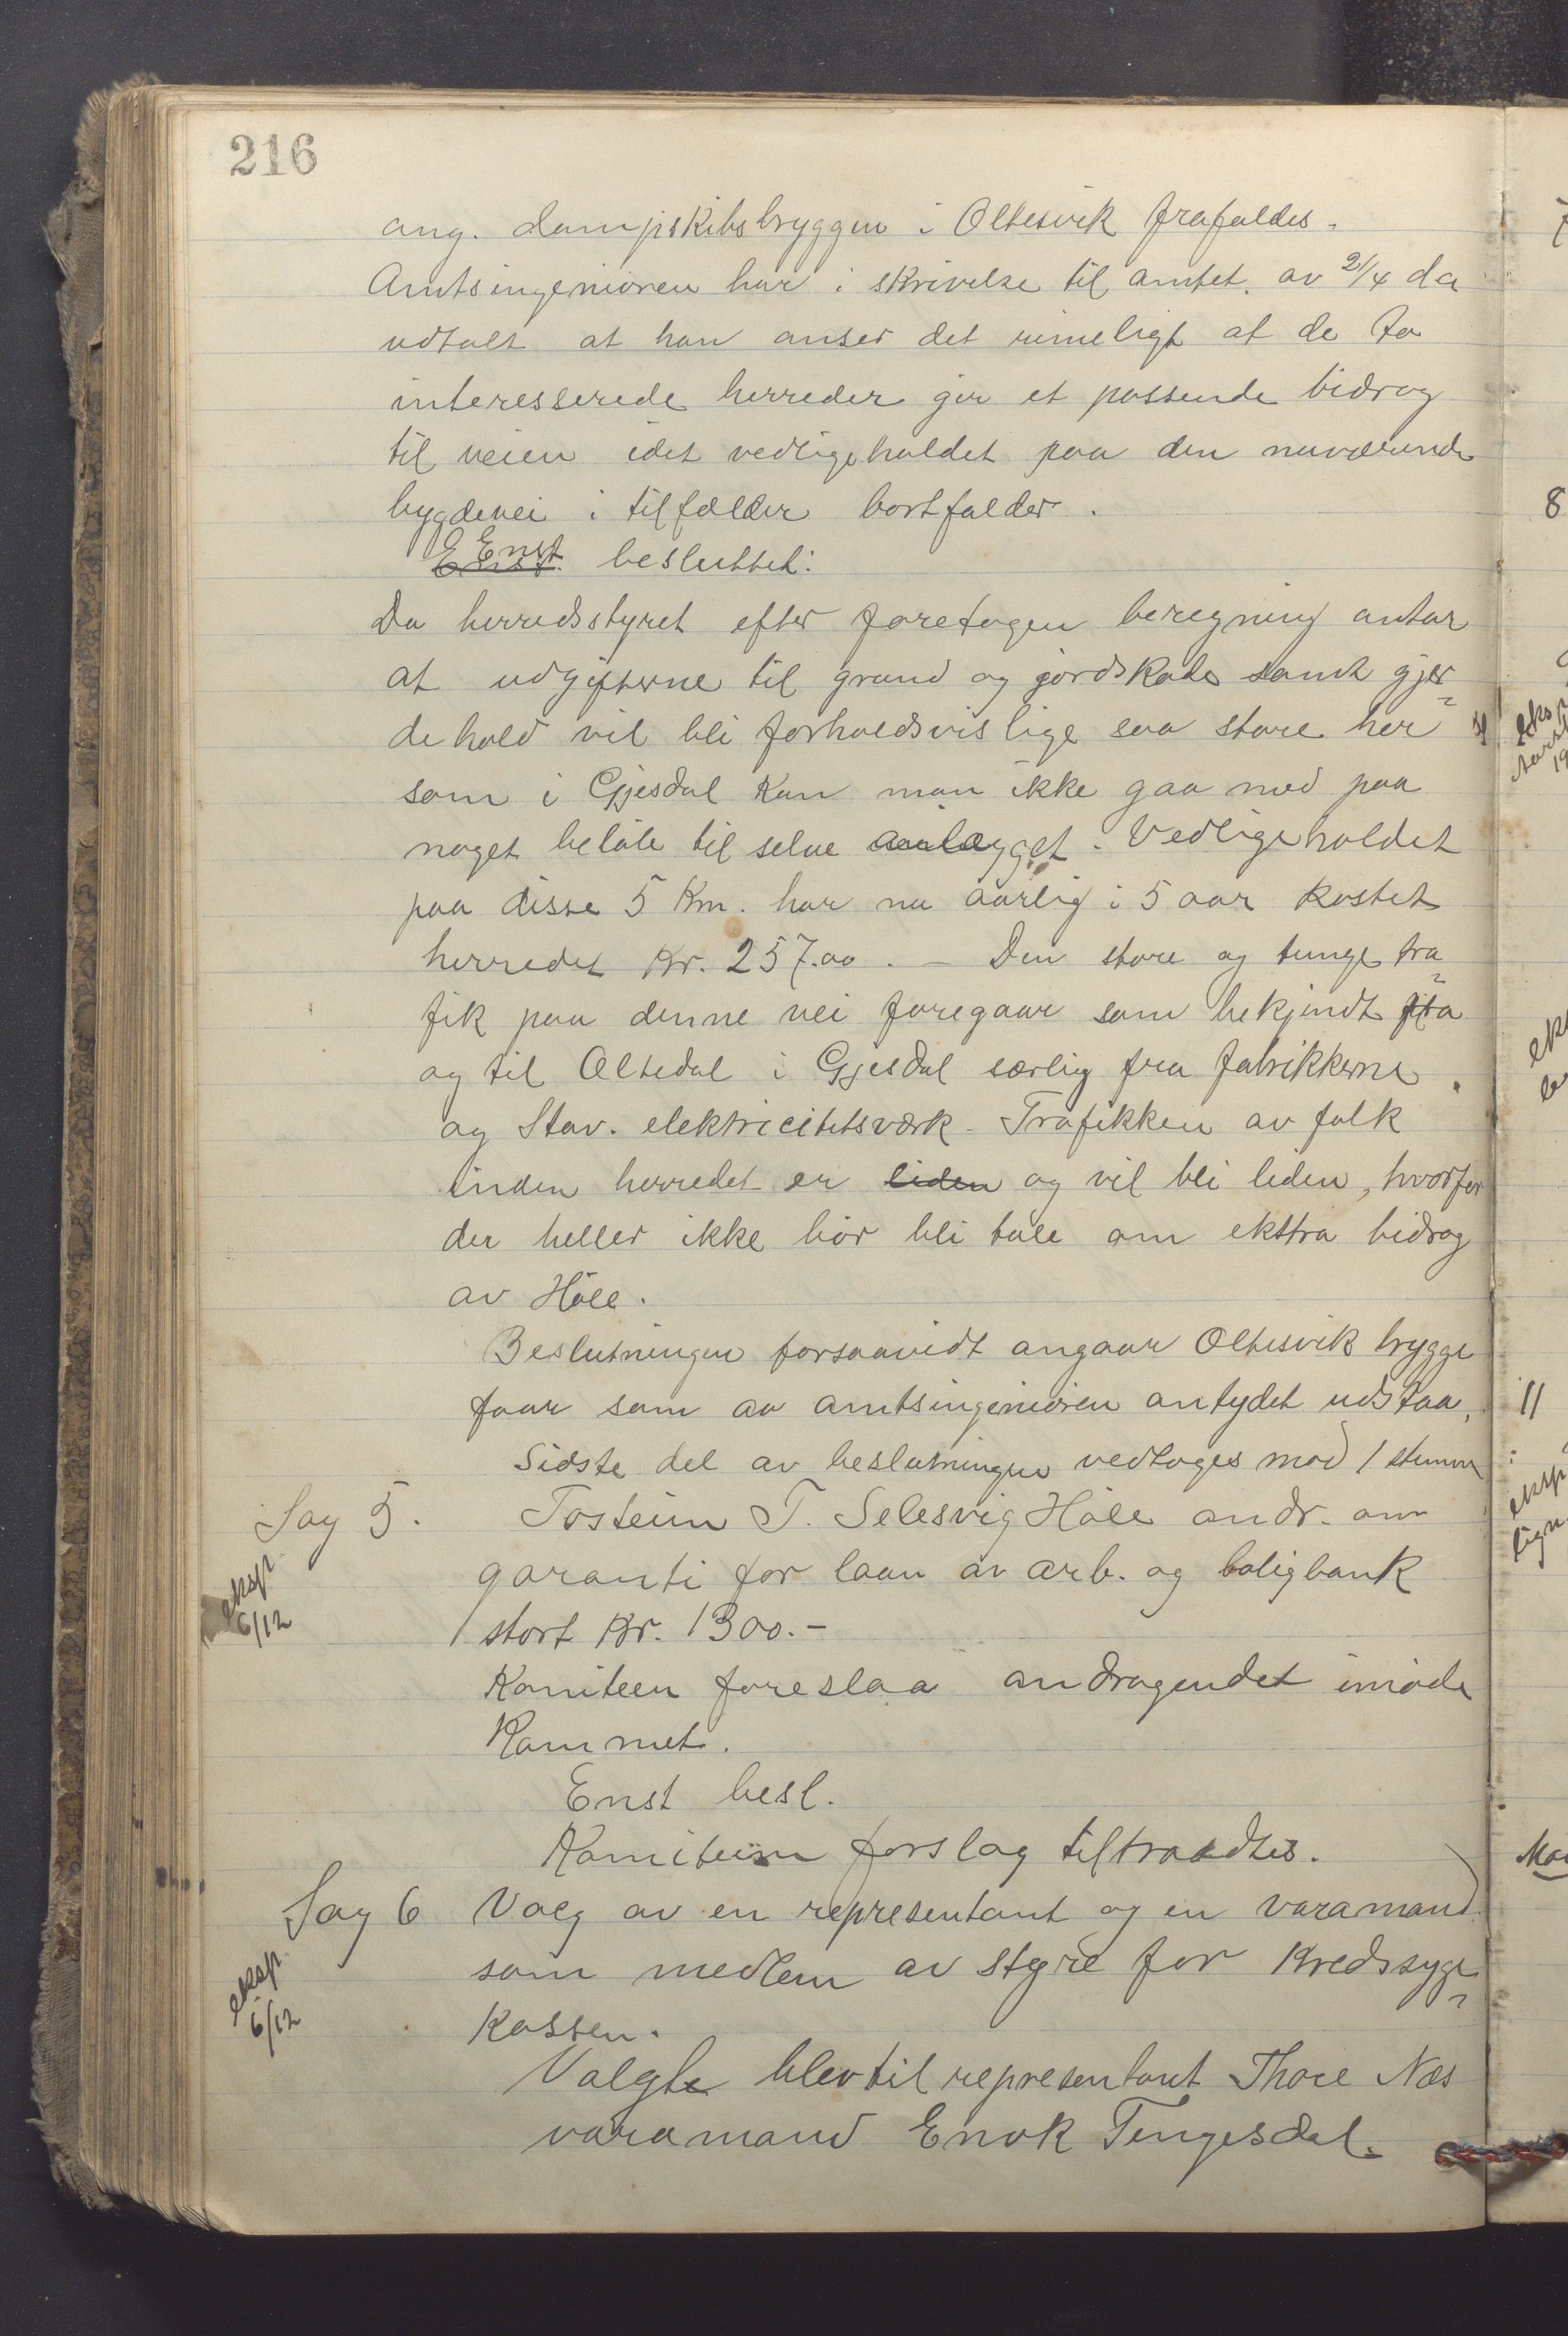 216
ang. dampskibsbryggen i Oltesvik frafaldes.
Amtsingeniören har i skrivelse til amtet av 21/4 da
udtalt at han anser det rimeligt at de to
interesserede herreder gir et passende bidrag
til veien idet vedligeholdet paa den nuværende
bygdevei i tilfælder bortfalder.
E Enst
E Enst. besluttet:
Da herredsstyret efter foretagen beregning antar
at udgifterne til grund og jordskade samt gjer=
dehold vil bli forholdsvislige saa store her
som i Gjesdal kan man ikke gaa med paa
noget belöb til selve anlægget. Vedligeholdet
paa disse 5 Km. har nu aarlig i 5 aar kostet
herredet Kr. 257.00. – Den store og tunge tra=
fik paa denne vei foregaar som bekjendt fra
og til Oltedal i Gjesdal særlig fra fabrikkerne
og Stav. elektricitetsværk. Trafikken av folk
inden herredet er liden og vil bli liden, hvorfor
der heller ikke bör bli tale om ekstra bidrag
av Höle.
Beslutningen forsaavidt angaar Oltesvik brygge
faar som av amtsingeniören antydet udstaa.
Sidste del av beslutningen vedtoges mod 1 stemme
Sag 5. Tostein T. Selesvig Höle andr. om
eksp. 6/12
garanti for laan av arb. og boligbank
stort Kr. 1300.-
Komiteen foreslaa andragendet imöde
kommet.
Enst besl.
Komiteens forslag tiltraadtes.
Sag 6 Valg av en representant og en varamand
eksp. 6/12
som medlem av styre for Kredssyge=
kassen.
Valgte blev til representant Thore Næs
varamand Enok Tengesdal.
8
11